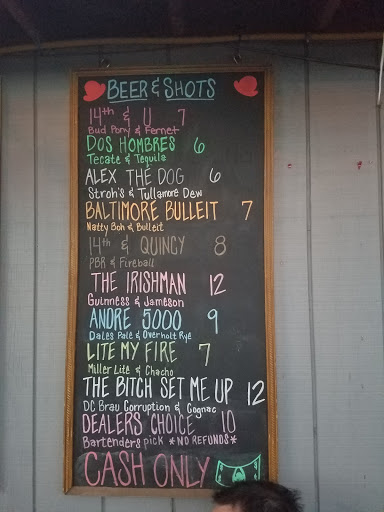 BEER & SHOTS
14th & U 7
Bud Pony & Fernet
DOS HOMBRES 6
Tecate & Tequila
ALEX THE DOG 6
Stroh's & Tullamore Dew
BALTIMORE BULLEIT 7
Natty Boh & Bulleit
14th & QUINCY 8
PBR & Fireball
THE IRISHMAN 12
Guinness & Jameson
ANDRE 5000 9
Dales Pale & Overholt Rye
LITE MY FIRE 7
Miller Lite & Chacho
THE BITCH SET ME UP 12
DC Brau Corruption & Cognac
DEALERS CHOICE 10
Bartenders pick *NO REFUNDS*
CASH ONLY